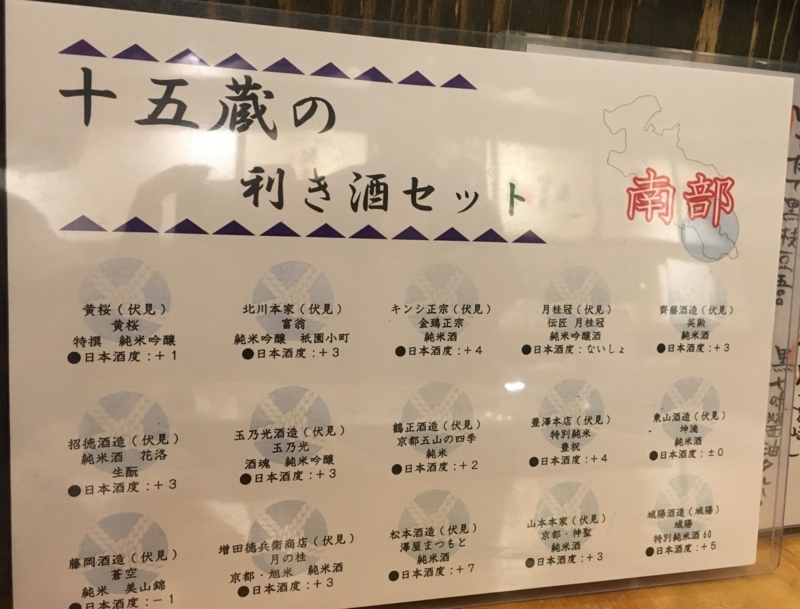 十五蔵の
利き酒セット
南部
黄桜（伏見）
黄桜
特撰　純米吟醸
●日本酒度：＋１
北川本家（伏見）
富翁
純米吟醸　祇園小町
●日本酒度：＋３
キンシ正宗（伏見）
金鵄正宗
純米酒
●日本酒度：＋４
月桂冠（伏見）
伝匠 月桂冠
純米吟醸酒
●日本酒度：ないしょ
齊藤酒造（伏見）
英勲
純米酒
●日本酒度：＋３
招德酒造（伏見）
純米酒　花洛
生酛
●日本酒度：＋３
玉乃光酒造（伏見）
玉乃光
酒魂　純米吟醸
●日本酒度：＋３
鶴正酒造（伏見）
京都五山の四季
純米
●日本酒度：＋２
豊澤本店（伏見）
特別純米
豊祝
●日本酒度：＋４
東山酒造（伏見）
坤滴
純米酒
●日本酒度：±０
藤岡酒造（伏見）
蒼空
純米　美山錦
●日本酒度：－１
増田德兵衞商店（伏見）
月の桂
京都・旭米　純米酒
●日本酒度：＋３
松本酒造（伏見）
澤屋まつもと
純米酒
●日本酒度：＋７
山本本家（伏見）
京都・神聖
純米酒
●日本酒度：＋３
城陽酒造（城陽）
城陽
特別純米酒60
●日本酒度：＋５